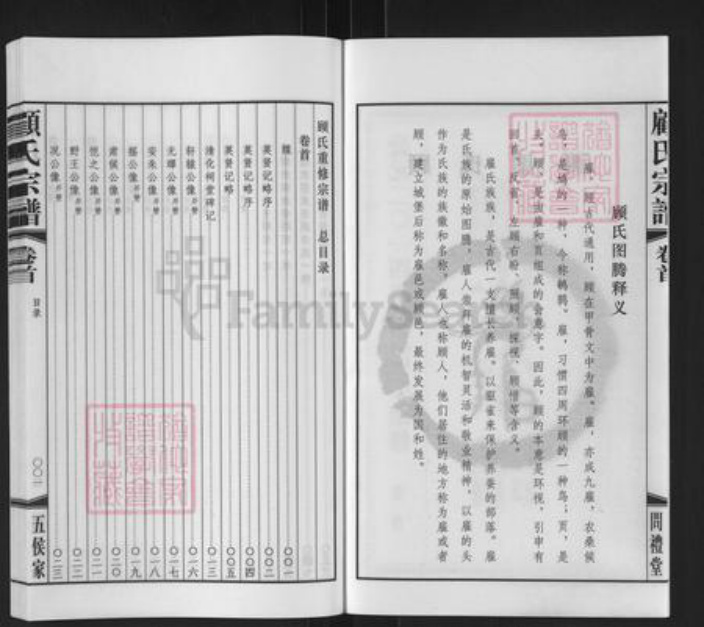 顾氏图腾释义
雇、顾古代通用，顾在甲骨文中为雇。雇，亦或九雇，农桑候
鸟，是鳸的一种，今称鹌鹑。雇，习惯四周环顾的一种鸟；页，是
头。顾，是由雇和页组成的会意字。因此，顾的本意是环视，引申有
回首、反省、左顾右盼、照顾、探视、顾惜等含义。
顾氏族族，是古代一支擅长养雇、以驱雀来保护养蚕的部落。雇
是氏族的原始图腾，雇人崇拜雇的机智灵活和敬业精神，以雇的头
作为氏族的族徽和名称。雇人也称顾人，他们居住的地方称为雇或者
顾，建立城堡后称为雇邑或顾邑，最终发展为国和姓。
顾氏宗谱
卷首
問禮堂
顾氏重修宗谱 总目录
卷首
〇〇一
英贤记略序 〇〇二
英贤记略序 〇〇四
英贤记略 〇〇五
清化祠堂碑记 〇一三
轩辕公像并赞 〇一六
元 公像并赞 〇一七
安朱公像并赞 〇一八
摇公像并赞 〇一九
肃侯公像并赞 〇二〇
恺之公像并赞 〇二一
野王公像并赞 〇二二
况公像并赞 〇二三
顧氏宗譜
卷首
目录
〇〇一
五侯家
FamilySearch